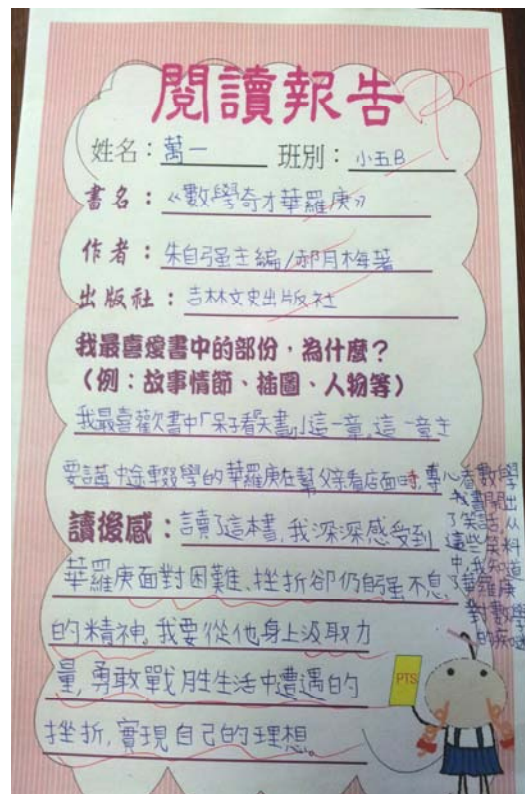 閱讀報告
姓名：萬一 班別：小五B
書名：《數學奇才華羅庚》
作者：朱自强主編/郝月梅著
出版社：吉林文史出版社
我最喜愛書中的部份，為什麼？
（例：故事情節、插圖、人物等）
我最喜歡書中「呆子看天書」這一章，這一章主
要講中途輟學的華羅庚在幫父亲看店面時，專心看數學
教書鬧出
了笑話，从
這些笑料
中，我知道
了華羅庚
對數學
的痴迷
讀後感：讀了這本書，我深深感受到
華羅庚面對困難、挫折卻仍自强不息
的精神。我要從他身上汲取力
量，勇敢戰胜生活中遭遇的
挫折，實現自己的理想。
PTS